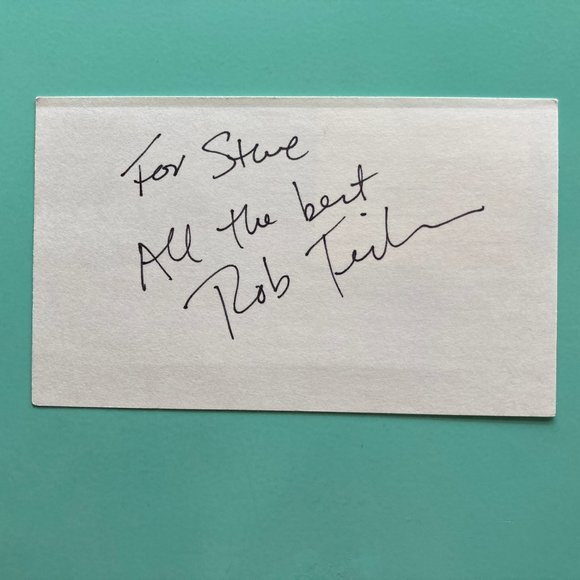 For Steve
All the best
Rob